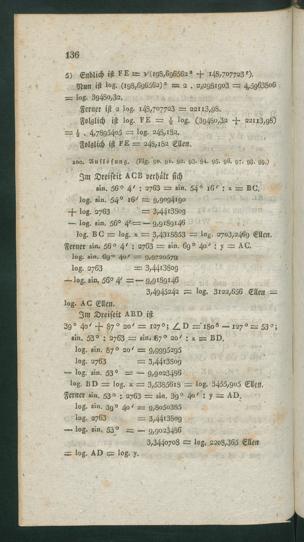 136
5) Endlich ist FE = √(198,696562² + 148,707723²).
Nun ist log. (198,696562)² = 2 . 2,2981903 = 4,5963806
= log. 39480,32.
Ferner ist 2 log. 148,707723 = 22113,98.
Folglich ist log. FE = ½ log. (39480,32 + 22113,98)
= ½ . 4,7895405 = log. 248,182.
Folglich ist FE = 248,182 Ellen.
100. Auflösung. (Fig. 90. 91. 92. 93. 94. 95. 96. 97. 98. 99.)
Im Dreiseit ACB verhält sich
sin. 56° 4' : 2763 = sin. 54° 16' : x = BC.
log. sin. 54° 16' = 9,9094190
+ log. 2763 = 3,4413809
— log. sin. 56° 4' = — 9,9189146
log. BC = log. x = 3,4318853 = log. 2703,2469 Ellen.
Ferner sin. 56° 4' : 2763 = sin. 69° 40' : y = AC.
log. sin. 69° 40' = 9,9720579
log. 2763 = 3,4413809
— log. sin. 56° 4' = — 9,9189146
3,4945242 = log. 3122,656 Ellen =
log. AC Ellen.
Im Dreiseit ABD ist
39° 40' + 87° 20' = 127°; ∠ D = 180° — 127° = 53°;
sin. 53° : 2763 = sin. 87° 20' : x = BD.
log. sin. 87° 20' = 9,9995295
log. 2763 = 3,4413809
— log. sin. 53° = — 9,9023486
log. BD = log. x = 3,5385618 = log. 3455,905 Ellen.
Ferner sin. 53° : 2763 = sin. 39° 40' : y = AD.
log. sin. 39° 40' = 9,8050385
log. 2763 = 3,4413809
— log. sin. 53° = — 9,9023486
3,3440708 = log. 2208,365 Ellen
= log. AD = log. y.